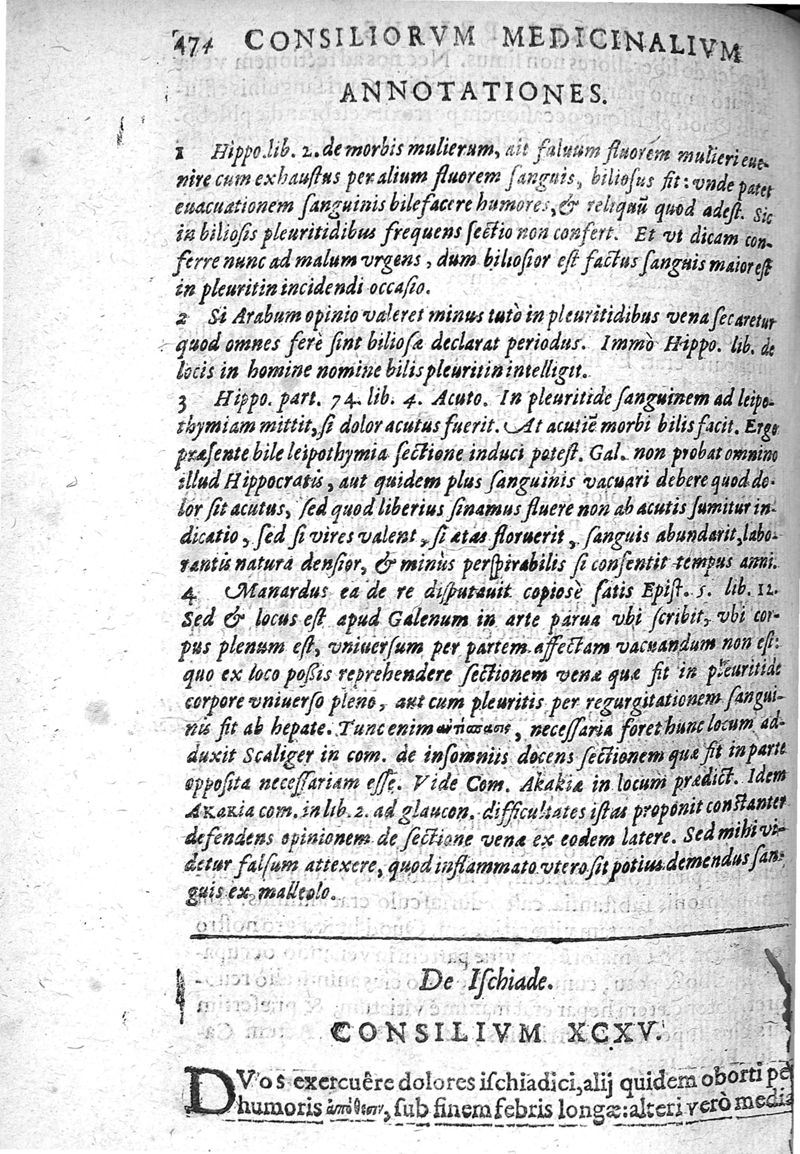 474 CONSILIORVM MEDICINALIVM
ANNOTATIONES.
1 Hippo. lib. 2. de morbis mulierum, ait faluum fluorem mulieri eue-
nire cum exhaustus per alium fluorem sanguis, biliosus fit: vnde patet
euacuationem sanguinis bilefacere humores, & reliquū quod adest. Sic
in biliosis pleuritidibus frequens sectio non confert. Et vt dicam con-
ferre nunc ad malum vrgens, dum biliosior est factus sanguis maior est
in pleuritin incidendi occasio.
2 Si Arabum opinio valeret minus tutò in pleuritidibus vena secaretur
quod omnes ferè sint biliosæ declarat periodus. Immò Hippo. lib. de
locis in homine nomine bilis pleuritin intelligit.
3 Hippo. part. 74. lib. 4. Acuto. In pleuritide sanguinem ad leipo-
thymiam mittit, si dolor acutus fuerit. At acutiē morbi bilis facit. Ergo
præsente bile leipothymia sectione induci potest. Gal. non probat omnino
illud Hippocratis, aut quidem plus sanguinis vacuari debere quod do-
lor sit acutus, sed quod liberius sinamus fluere non ab acutis sumitur in-
dicatio, sed si vires valent, si ætas floruerit, sanguis abundarit, labo-
rantis natura densior, & minùs perspirabilis si consentit tempus anni.
4 Manardus ea de re disputauit copiosè satis Epist. 5. lib. 12.
Sed & locus est apud Galenum in arte parua vbi scribit, vbi cor-
pus plenum est, vniuersum per partem affectam vacuandum non est:
quo ex loco possis reprehendere sectionem venæ quæ fit in pleuritide
corpore vniuerso pleno, aut cum pleuritis per regurgitationem sangui-
nis fit ab hepate. Tunc enim, necessaria foret hunc locum ad-
duxit Scaliger in com. de insomniis docens sectionem quæ fit in parte
opposita necessariam esse. Vide Com. Akakiæ in locum prædict. Idem
Akakia com. in lib. 2. ad glaucon. difficultates istas proponit constanter
defendens opinionem de sectione venæ ex eodem latere. Sed mihi vi-
detur falsum attexere, quod inflammato vtero sit potius demendus san-
guis ex malleolo.
De Ischiade.
CONSILIVM XCXV.
DVos exercuêre dolores ischiadici, alij quidem oborti pe
humoris, sub finem febris longæ: alteri verò media